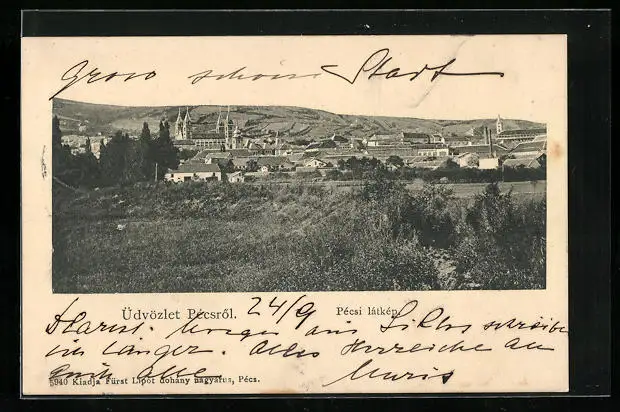 Gross schoene Stadt
Üdvözlet Pécsről. 24/9 Pécsi látkép.
Morgen aus Siklos schreibe
länger. Alles Herzliche an
Euch alle
5040 Kiadja Fürst Lipót dohány nagyárus, Pécs.